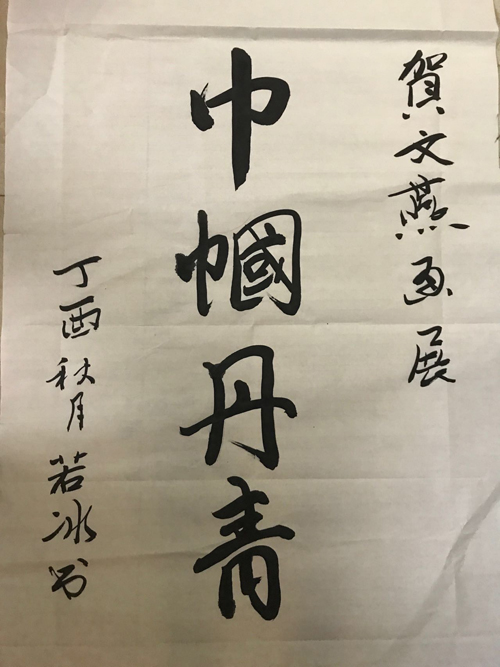 賀文燕画展
巾帼丹青
丁酉秋月若冰书